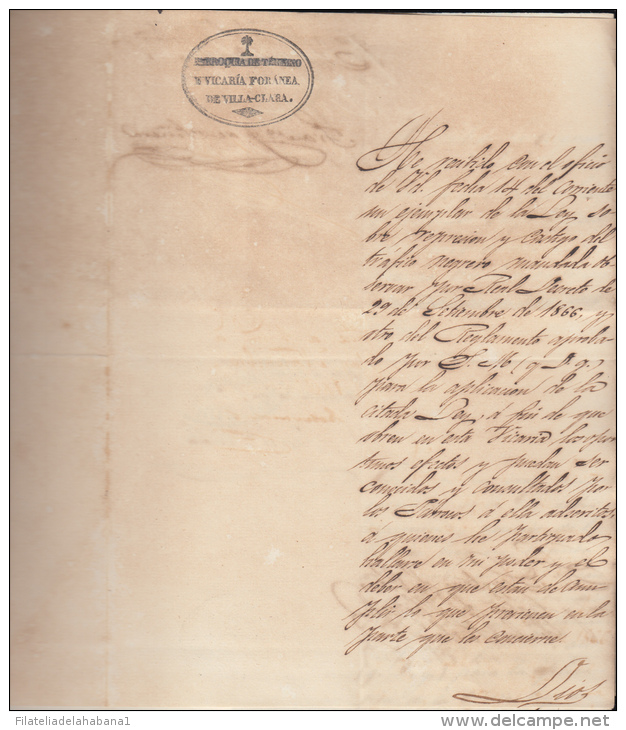 PARROQUIA DE TÉRMINO
Y VICARÍA FORÁNEA
DE VILLA-CLARA.
He recibido con el oficio
de Vd. fecha 14 del corriente
un ejemplar de la Ley so-
bre represion y castigo del
tráfico negrero mandada ob
servar por Real Decreto de
29 de Setiembre de 1866, y
otro del Reglamento aproba-
do por S. M. (q. D. g.
para la aplicacion de la
citada Ley, á fin de que
obren en esta Vicaría los opor
tunos efectos y puedan ser
conocidos y consultados por
los Párrocos á ella adscritos,
á quienes he participado
hallarse en mi poder y el
deber en que estan de cum
plir lo que previenen en la
parte que les concierne
Dios
FilateliadelaHabana1
www.delcampe.net